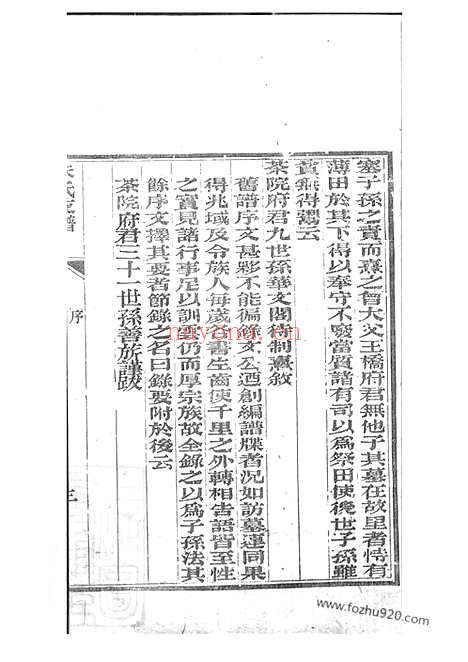 塞子孫之責而熹之曾大父王橋府君無他子其墓在故里者恃有
薄田於其下得以奉守不廢當質諸有司以爲祭田使後世子孫雖
貧無得鬻云
茶院府君九世孫華文閣待制熹敘
舊譜序文甚夥不能徧錄文公迺創編譜牒者況如訪墓連同果
得兆域及令族人每歲各書生齒使千里之外轉相告語皆至性
之實見諸行事足以訓要仍而厚宗族故全錄之以爲子孫法其
餘序文擇其要者節錄之名曰錄要附於後云
茶院府君三十一世孫善於謹跋
朱氏支譜
序
三
nayona.cn
www.fozhu920.com